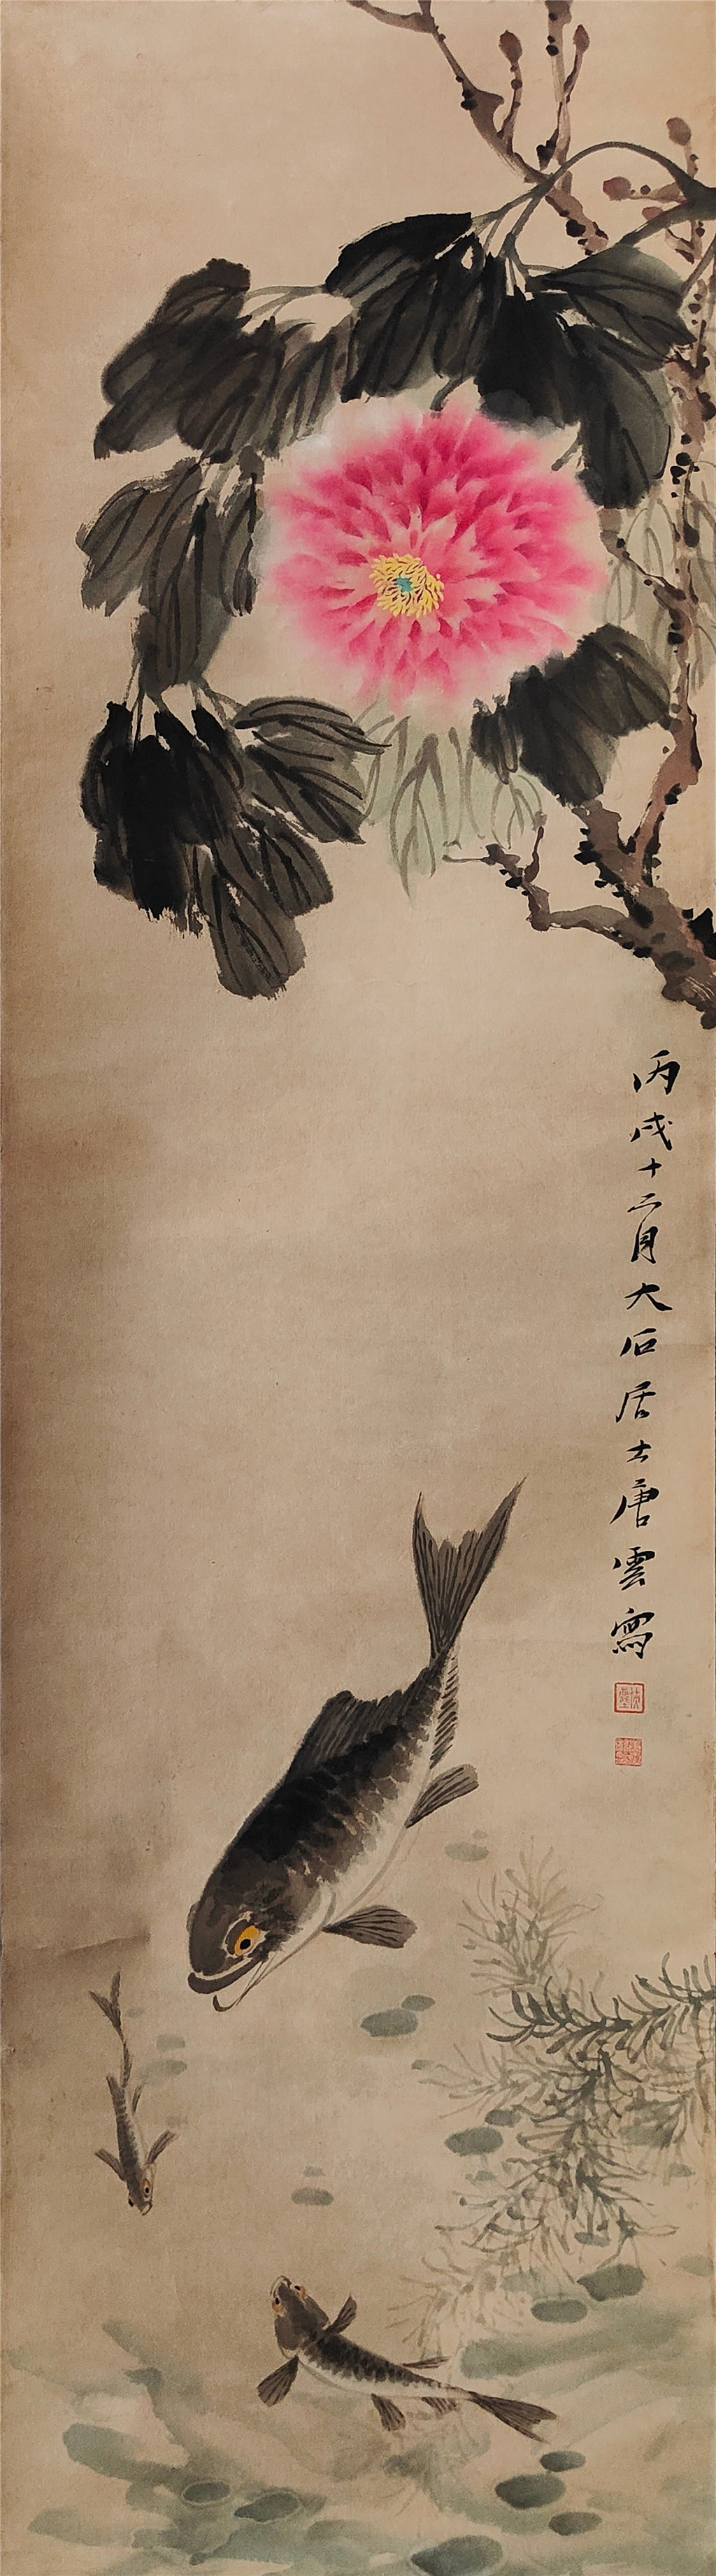 丙戌十二月大石居士唐雲寫